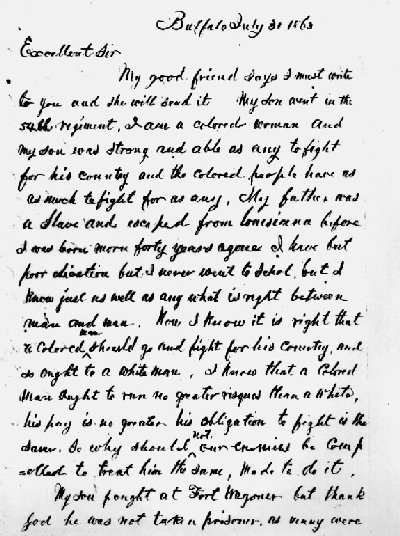 Buffalo July 31 1863
Excellent Sir
My good friend says I must write
to you and she will send it My son went in the
54th regiment, I am a colored woman and
my son was strong and able as any to fight
for his country and the colored people have as
as much to fight for as any, My father was
a Slave and escaped from Louisiana before
I was born morn forty years agone I have but
poor edication but I never went to schol, but I
know just as well as any what is right between
man and man. Now I know it is right that
a colored man should go and fight for his country, and
so ought to a white man, I know that a colored
man ought to run no greater risques than a white,
his pay is no greater his obligation to fight is the
same. So why should not our enemies be comp
-elled to treat him the same, Made to do it,
My son fought at Fort Wagoner but thank
God he was not taken prisoner, as many were